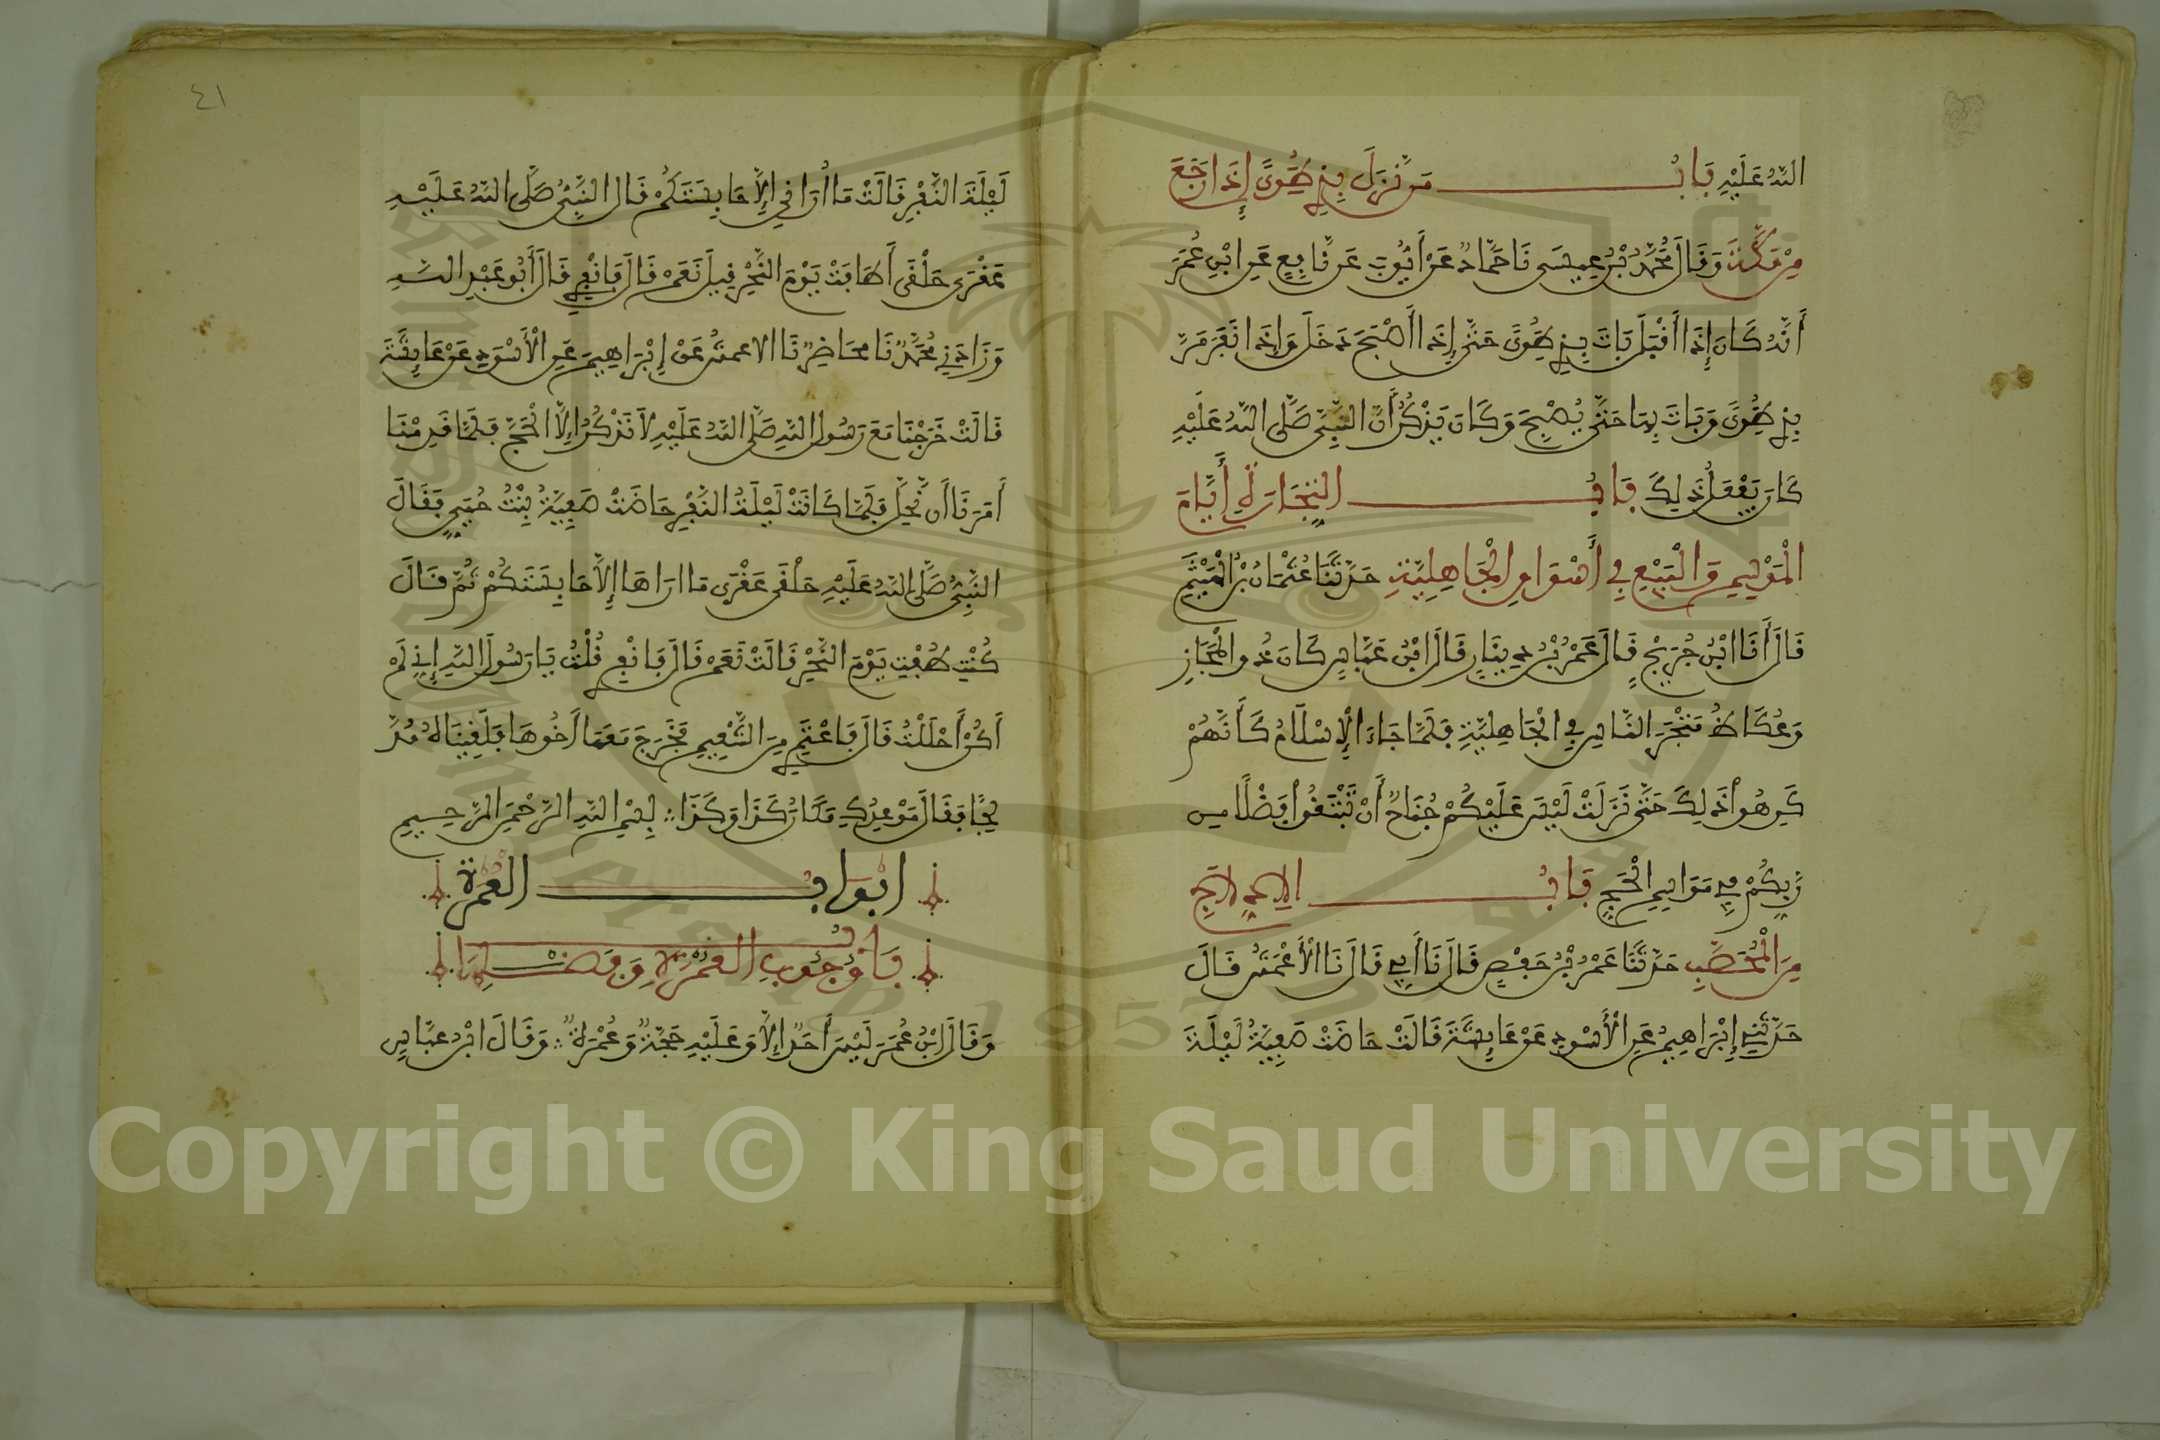 اللهُ عَلَيْهِ بَابُ مَن نَزَلَ بِذِي طُوًى إِذَا رَجَعَ
مِن مَكَّةَ وَقَالَ مُحَمَّدُ بْنُ عِيسَى نَا حَمَّادٌ عَنْ أَيُّوبَ عَن نَّافِعٍ عَنِ ابْنِ عُمَرَ
أَنَّهُ كَانَ إِذَا أَقْبَلَ بَاتَ بِذِي طُوًى حَتَّى إِذَا أَصْبَحَ دَخَلَ وَإِذَا نَفَرَ مَرَّ
بِذِي طُوًى وَبَاتَ بِهَا حَتَّى يُصْبِحَ وَكَانَ يَذْكُرُ أَنَّ النَّبِيَّ صَلَّى اللهُ عَلَيْهِ
كَانَ يَفْعَلُ ذَلِكَ بَابُ التِّجَارَةِ أَيَّامَ
الْمَوْسِمِ وَالْبَيْعِ فِي أَسْوَاقِ الْجَاهِلِيَّةِ حَدَّثَنَا عُثْمَانُ بْنُ الْهَيْثَمِ
قَالَ أَنَا ابْنُ جُرَيْجٍ قَالَ عَمْرُ بْنُ دِينَارٍ قَالَ ابْنُ عَبَّاسٍ كَانَ ذُو الْمَجَازِ
وَعُكَاظُ مَتْجَرَ النَّاسِ فِي الْجَاهِلِيَّةِ فَلَمَّا جَاءَ الْإِسْلَامُ كَأَنَّهُمْ
كَرِهُوا ذَلِكَ حَتَّى نَزَلَتْ لَيْسَ عَلَيْكُمْ جُنَاحٌ أَنْ تَبْتَغُوا فَضْلًا مِن
رَّبِّكُمْ فِي مَوَاسِمِ الْحَجِّ بَابُ الِادِّلَاجِ
مِنَ الْمُحَصَّبِ حَدَّثَنَا عُمَرُ بْنُ حَفْصٍ قَالَ نَا أَبِي قَالَ نَا الْأَعْمَشُ قَالَ
حَدَّثَنِي إِبْرَاهِيمُ عَنِ الْأَسْوَدِ عَنْ عَائِشَةَ قَالَتْ حَاضَتْ صَفِيَّةُ لَيْلَةَ
٤١
لَيْلَةَ النَّفْرِ فَقَالَتْ مَا أُرَانِي إِلَّا حَابِسَتَكُمْ قَالَ النَّبِيُّ صَلَّى اللهُ عَلَيْهِ
عَقْرَى حَلْقَى أَطَافَتْ يَوْمَ النَّحْرِ قِيلَ نَعَمْ قَالَ فَانْفِرِي قَالَ أَبُو عَبْدِ اللهِ
وَزَادَنِي مُحَمَّدٌ نَا مُحَاضِرٌ نَا الاعمشُ عَنْ إِبْرَاهِيمَ عَنِ الْأَسْوَدِ عَنْ عَائِشَةَ
قَالَتْ خَرَجْنَا مَعَ رَسُولِ اللهِ صَلَّى اللهُ عَلَيْهِ لَا نَذْكُرُ إِلَّا الْحَجَّ فَلَمَّا قَدِمْنَا
أَمَرَنَا أَن نَّحِلَّ فَلَمَّا كَانَتْ لَيْلَةُ النَّفْرِ حَاضَتْ صَفِيَّةُ بِنْتُ حُيَيٍّ فَقَالَ
النَّبِيُّ صَلَّى اللهُ عَلَيْهِ حَلْقَى عَقْرَى مَا ارَاهَا إِلَّا حَابِسَتَكُمْ ثُمَّ قَالَ
كُنْتِ طُفْتِ يَوْمَ النَّحْرِ قَالَتْ نَعَمْ قَالَ فَانْفِرِي قُلْتُ يَا رَسُولَ اللهِ إِنِّي لَمْ
أَكُنْ أَحْلَلْتُ قَالَ فَاعْتَمِرِي مِنَ التَّنْعِيمِ فَخَرَجَ مَعَهَا أَخُوهَا فَلَقِينَاهُ مُدَّ
لِجًا فَقَالَ مَوْعِدُكِ مَكَانُ كَذَا وَكَذَا بِسْمِ اللهِ الرَّحْمَنِ الرَّحِيمِ
ابْوَابُ الْعُمْرَةِ
بَابُ وُجُوبِ الْعُمْرَةِ وَفَضْلِهَا
وَقَالَ ابْنُ عُمَرَ لَيْسَ أَحَدٌ إِلَّا وَعَلَيْهِ حَجَّةٌ وَعُمْرَةٌ وَقَالَ ابْنُ عَبَّاسٍ
Copyright © King Saud University